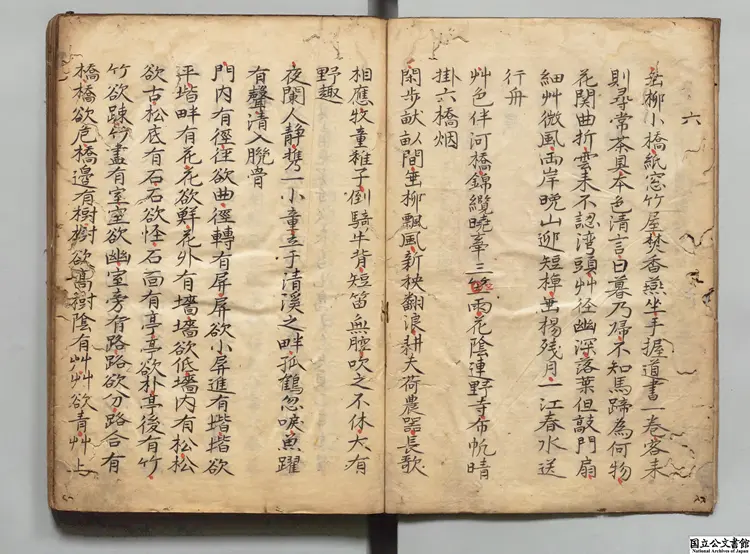 六
垂柳小橋紙窓竹屋焚香燕坐手握道書一巻客来
則尋常茶具本色清言日暮乃帰不知馬蹄為何物
花関曲折雲来不認湾頭艸径幽深落葉但敲門扇
細艸微風両岸晩山迎短棹垂楊残月一江春水送
行舟
艸色伴河橋錦纜暁牽三竺雨花陰連野寺布帆晴
掛六橋烟
閑歩畎畝間垂柳飄風新秧翻浪耕夫荷農器長歌
相應牧童稚子倒騎牛背短笛無腔吹之不休大有
野趣
夜闌人静携一小童立于清溪之畔孤鶴忽唳魚躍
有聲清入肌骨
門内有徑徑欲曲徑轉有屏屏欲小屏進有堦堦欲
平堦畔有花花欲鮮花外有墻墻欲低墻内有松松
欲古松底有石石欲怪石面有亭亭欲朴亭後有竹
竹欲疎竹盡有室室欲幽室旁有路路欲分路合有
橋橋欲危橋邊有樹樹欲高樹陰有艸艸欲青艸上
国立公文書館
National Archives of Japan